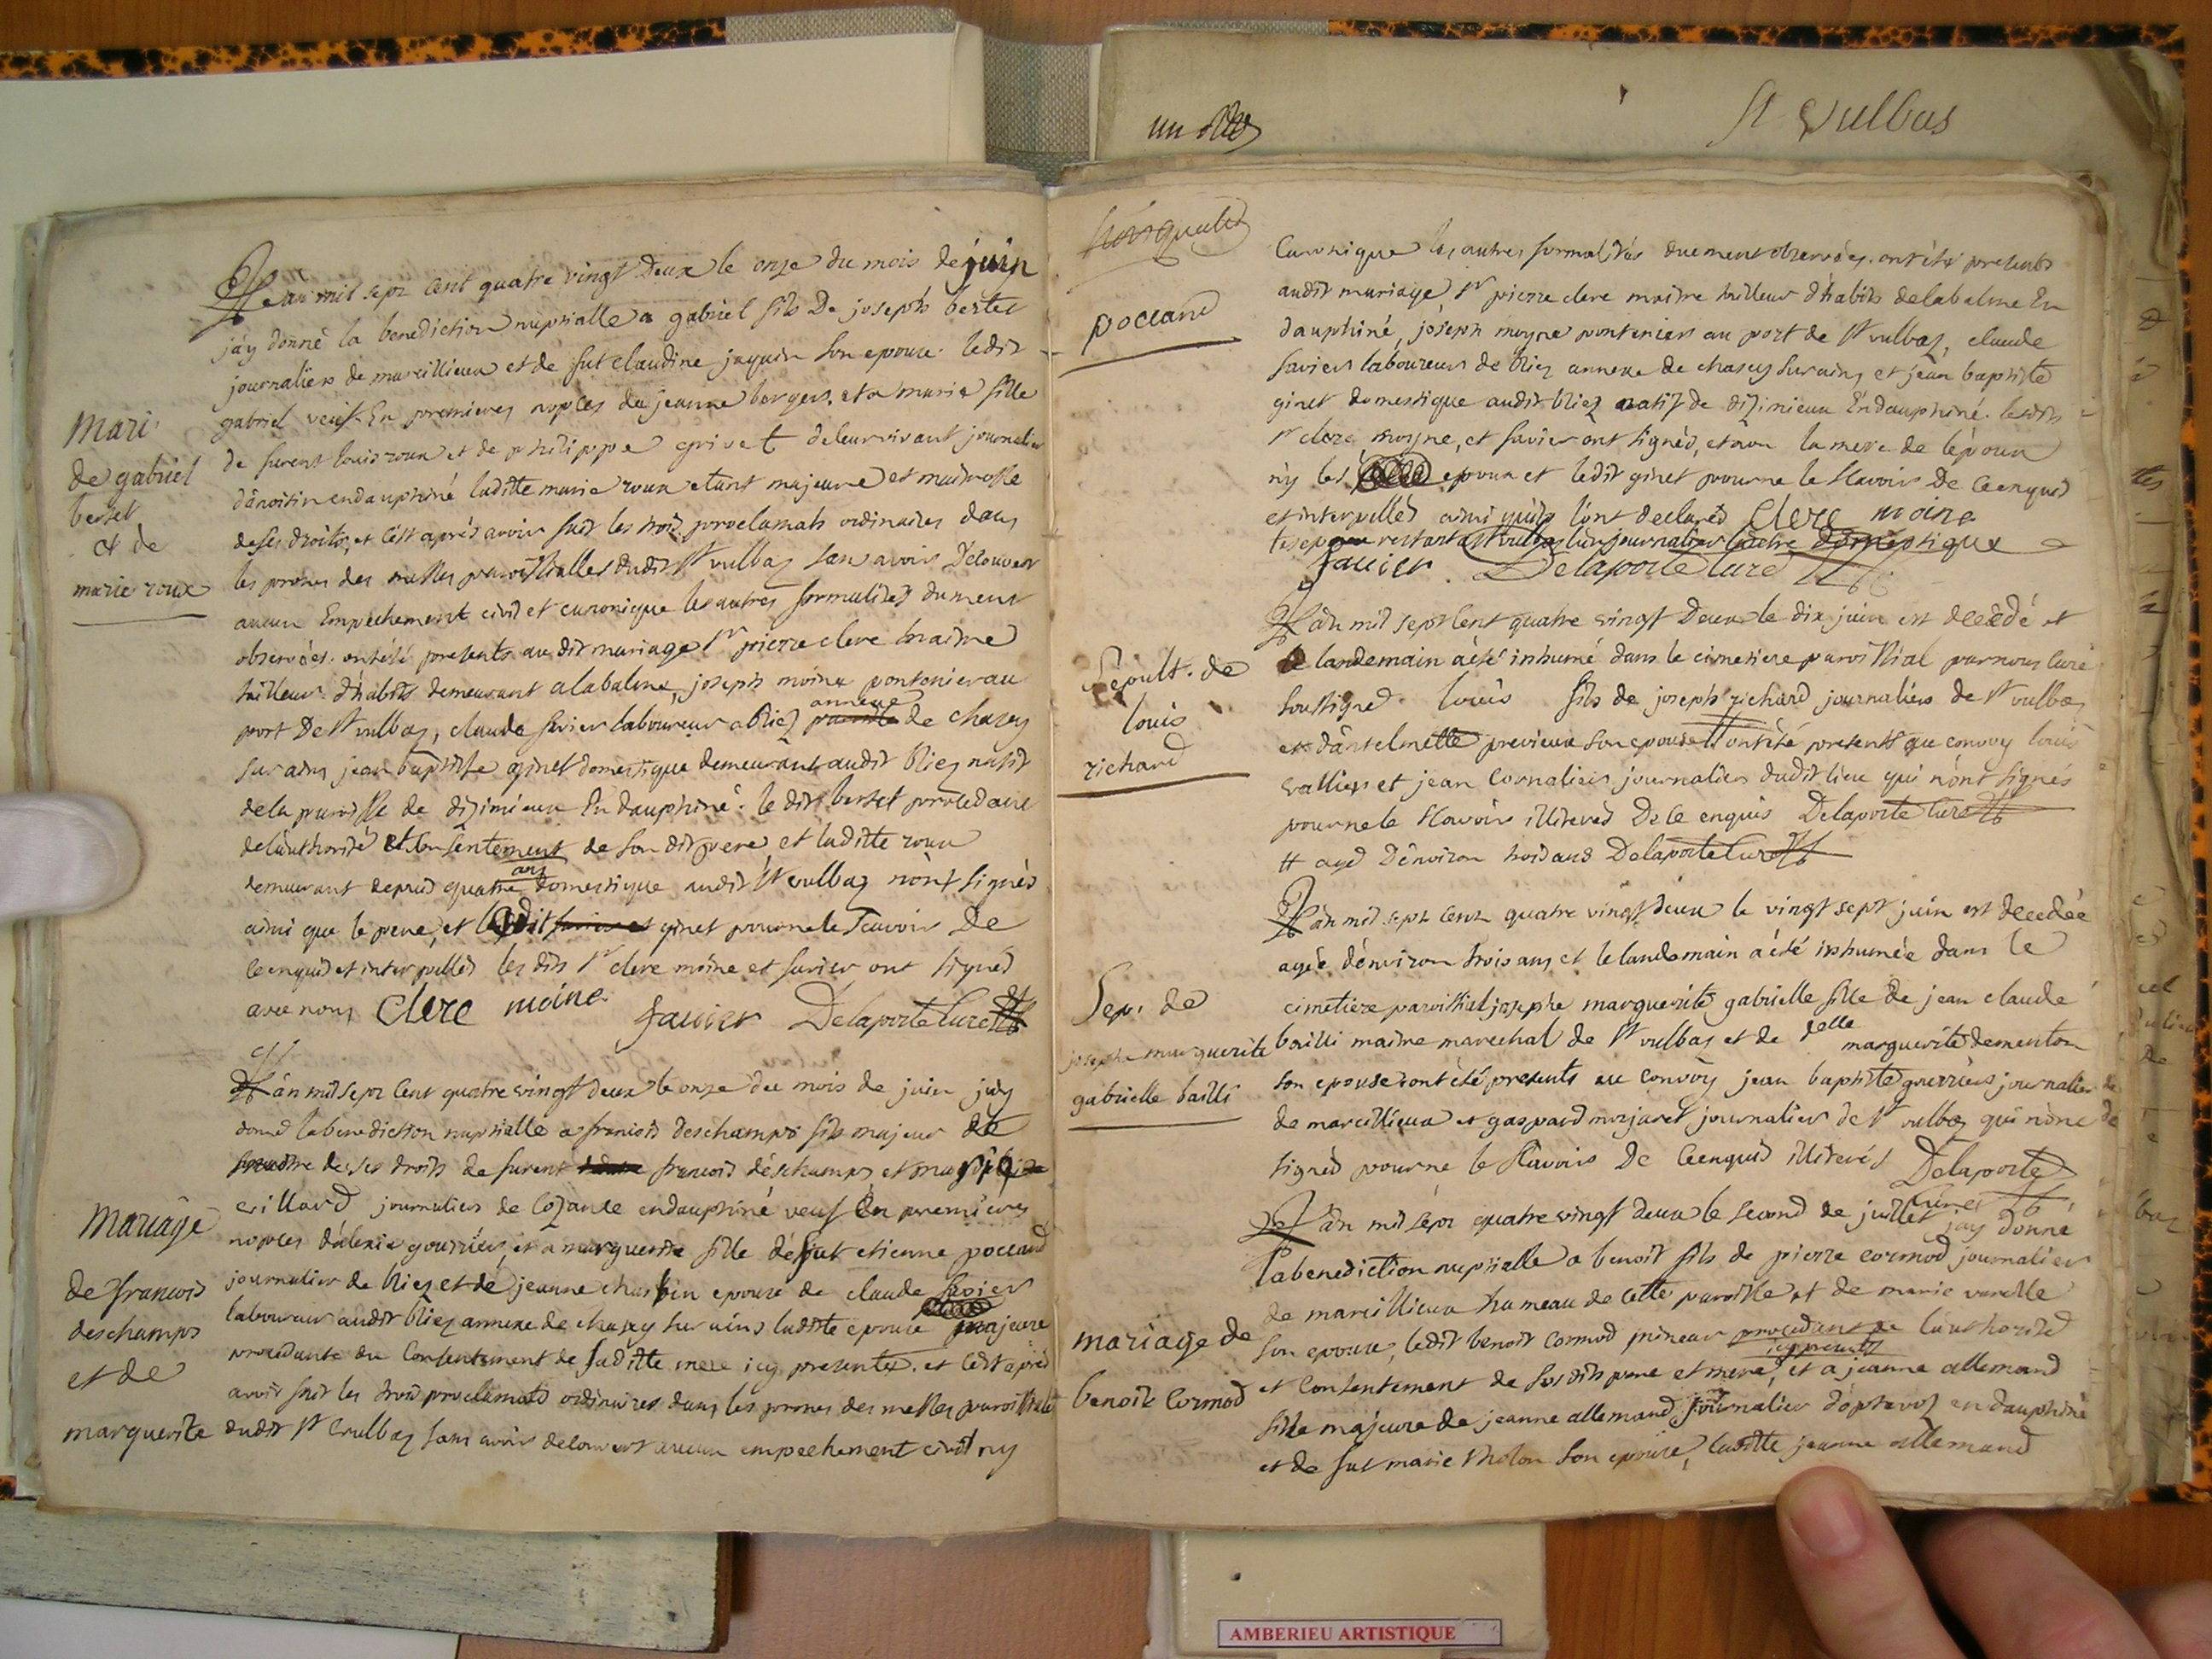 un
St Vulbas
L'an mil sept cent quatre vingt deux le onze du mois de juin
jay donné la benediction nuptialle a gabriel fils De joseph berset
journaliers de marcillieux et de fut claudine jaquin son epouse. ledit
gabriel veuf En premieres nopces de jeanne bergers. et a marie fille
de furent louis roux et de philippe grivet deleurvivant journalier
en dauphiné laditte marie roux etant majeure et maitresse
de ses droits, et cest aprés avoir fait les trois proclamats ordinaires dans
les prones des messes paroissialles dudit St vulbas sans avoir Découvert
aucun Empechement civil et canonique les autres formalités dument
observées. ont été presents au dit mariage Sr pierre clerc maitre
tailleur d'habits demeurant a labalme, joseph moine pontonier au
port De St vulbas, claude favier laboureur a bliez annexe de chazey
sur ains, jean baptiste ginet domestique demeurant audit bliez natif
de la paroisse de dizimieux En dauphiné. le dit berset procedant
de lauthorité et consentement de son dit pere et laditte roux
demeurant depuis quatre ans domestique audit St vulbas nont signés
ainsi que le pere, et ledit ginet pour ne le scavoir De
ce enquis et interpellés les dits Sr clerc moine et favier ont signés
avec nous Clerc moine favier Delaporte Curé
Mari
de gabriel
berset
et de
marie roux
L'an mil sept cent quatre vingt deux le onze du mois de juin jay
donné la benediction nuptialle a francois deschamps fils majeur et
maitre de ses droits de furent francois deschamps et
crillard journaliers de lozanne en dauphiné veuf En premieres
nopces et a marguerite fille de fut etienne poccand
journalier de bliez et de jeanne epouse de claude favier
laboureur audit bliez annexe de chazey sur ains laditte epouse majeure
procedante du Consentement de saditte mere icy presente. et cest aprés
avoir fait les trois proclamats ordinaires dans les prones des messes paroissialles
dudit St vulbas sans avoir decouvert aucun empechement civil ny
Mariage
de francois
deschamps
et de
marguerite
poccand
Canonique les autres formalités duement observées. ont été presents
audit mariage Sr pierre clerc maitre tailleur d'habits de labalme En
dauphiné, joseph moyne pontoniers au port de St vulbas, claude
faviers laboureurs de bliez annexe de chazey sur ains, et jean baptiste
ginet domestique audit bliez natif de dizimieux En dauphiné. lesdits
Sr clerc moyne, et favier ont signés, et non la mere de lépoux
ny les epoux et ledit ginet pour ne le scavoir De ce enquis
et interpellés ainsi quils lont declarés Clerc moine
favier Delaporte curé
L'an mil sept cent quatre vingt deux le dix juin est decédé et
le landemain a été inhumé dans le cimetiere paroissial par nous curé
soussigné louis fils de joseph richard journaliers de St vulbas
et dantelmette previeux son epouse ont été presents au convoy louis
vallier et jean cornaliers journaliers dudit lieu qui nont signés
pour ne le scavoir illiterés De ce enquis Delaporte Curé
# agé Dénviron trois ans Delaporte Curé
Sépult. de
louis
richard
L'an mil sept cent quatre vingt deux le vingt sept juin est decedée
agée dénviron trois ans et le landemain a été inhumée dans le
cimetiere paroissial josephe marguerite gabrielle fille de jean claude
bailli maitre marechal de St vulbas et de delle marguerite dementon
son epouse ont été presents au convoy jean baptiste gourriers journalier
de marcillieux et gaspard morjaret journalier de St vulbas qui nont
signés pour ne le scavoir De ce enquis illiterés Delaporte
Curé
Sep. de
josephe marguerite
gabrielle bailli
L'an mil sept quatre vingt deux le second de juillet jay donné
la benediction nuptialle a benoit fils de pierre cormod journalier
de marcillieux hameau de cette paroisse et de marie varelle
son epouse, ledit benoit cormod mineur procedant de lauthorité
et Consentement de sesdits pere et mere, icy presents et a jeanne allemand
fille majeure de jeanne allemand journalier dóptevoz en dauphiné
et de fut marie tholon son epouse, laditte jeanne allemand
mariage de
benoit Cormod
AMBERIEU ARTISTIQUE